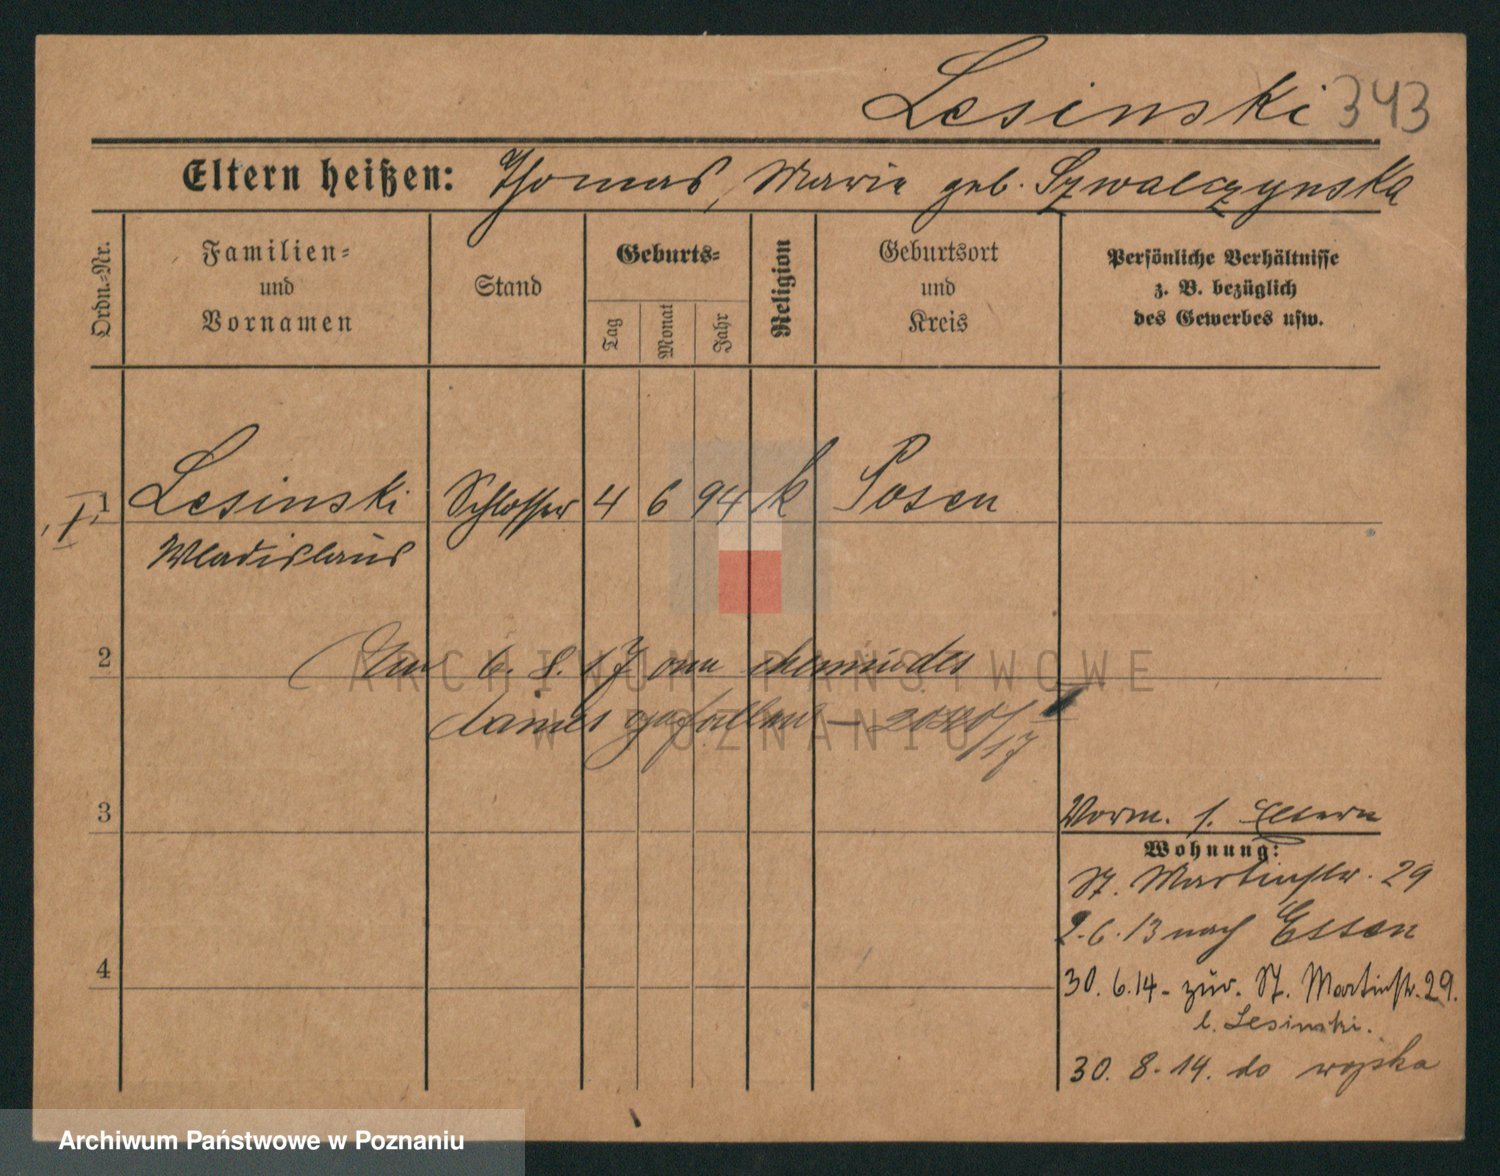 Lesinski 343
Eltern heißen: Thomas, Marie geb. Szwalczynska
Ordn.-Nr.
Familien-
und
Vornamen
Stand
Geburts-
Tag
Monat
Jahr
Religion
Geburtsort
und
Kreis
Persönliche Verhältnisse
z. B. bezüglich
des Gewerbes usw.
I. 1 Lesinski Schlosser 4 6 94 k Posen
Wladislaus
2 Am 6. 8. 17 am chemin des
dames gefallen —
ARCHIWUM PAŃSTWOWE
W POZNANIU
3
Vorm. s. Eltern
Wohnung:
St. Martinstr. 29
2. 6. 13 nach Essen
4
30. 6. 14 - zur. St. Martinstr. 29.
b. Lesinski.
30. 8. 14. do wojska
Archiwum Państwowe w Poznaniu